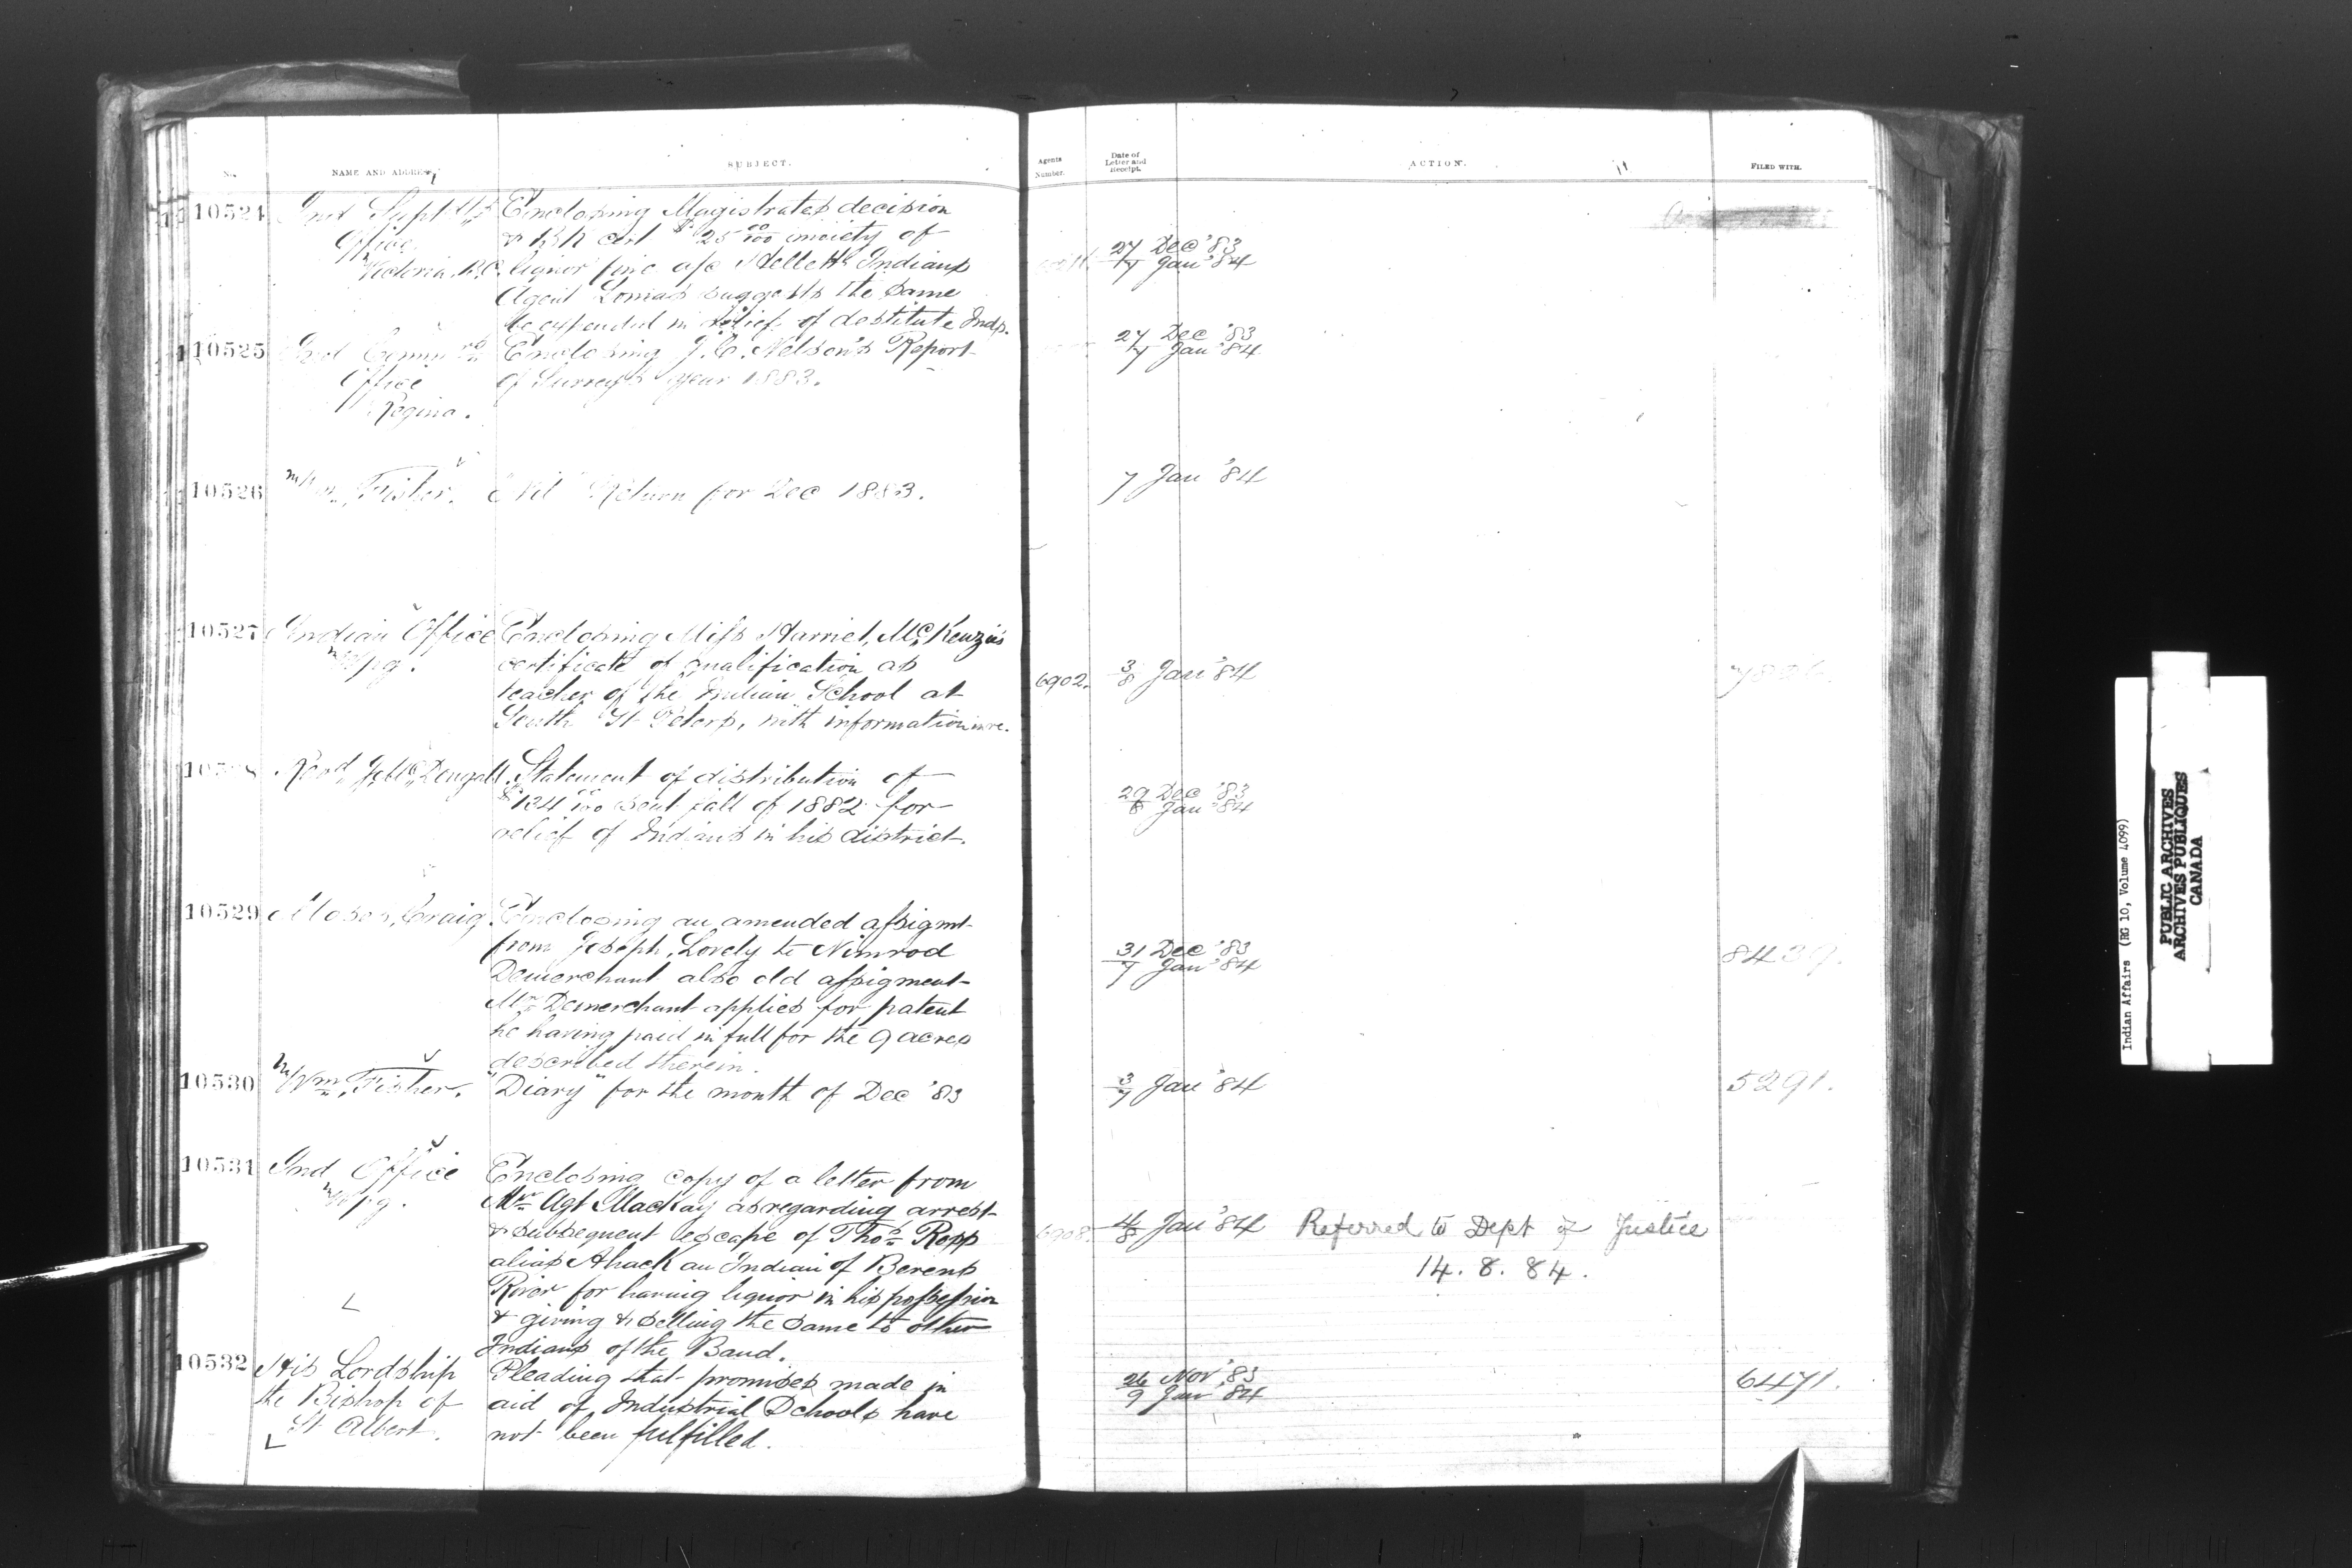 No. NAME AND ADDRESS SUBJECT. Agents Number. Date of Letter and Receipt. ACTION. FILED WITH.
10524 Ind Supt Office Victoria B.C.
Enclosing Magistrates decision
& Bk cert $25 00/100 moiety of
liquor fine a/c Indians
Agent Lomas suggests the same
be expended in relief of destitute Inds.
27 Dec '83
7 Jan '84
10525 Ind Commrs
Office
Regina.
Enclosing J.C. Nelson's Report
of Surveys year 1883.
27 Dec '83
7 Jan '84
10526 Wm Fisher.
"Nil" Return for Dec 1883.
7 Jan '84
10527 Indian Office
Wpg.
Enclosing Miss Harriet McKenzie's
certificate of qualification as
teacher of the Indian School at
South St Peters, with information in re.
6902.
3/8 Jan '84
10528 Revd J. McDougall
Statement of distribution of
$134 00/100 sent fall of 1882 for
relief of Indians in his district.
29 Dec '83
8 Jan '84
10529 Moses Craig
Enclosing an amended assigmt
from Joseph Lovely to Nimrod
Demerchant also old assigment
Mr Demerchant applies for patent
he having paid in full for the 9 acres
described therein.
31 Dec '83
7 Jan '84
8439.
10530 Wm Fisher.
"Diary" for the month of Dec '83
3/7 Jan '84
5291.
10531 Ind Office
Wpg.
Enclosing copy of a letter from
Mr Agt MacKay as regarding arrest
& subsequent escape of Thos Ropp
alias Ahack an Indian of Berens
River for having liquor in his possession
& giving & selling the same to other
Indians of the Band.
6908.
4/8 Jan '84
Referred to Dept of Justice
14. 8. 84.
10532 His Lordship
the Bishop of
St Albert.
Pleading that promises made in
aid of Industrial Schools have
not been fulfilled.
26 Nov '83
9 Jan '84
6471.
Indian Affairs (RG 10, Volume 4099)
PUBLIC ARCHIVES
ARCHIVES PUBLIQUES
CANADA